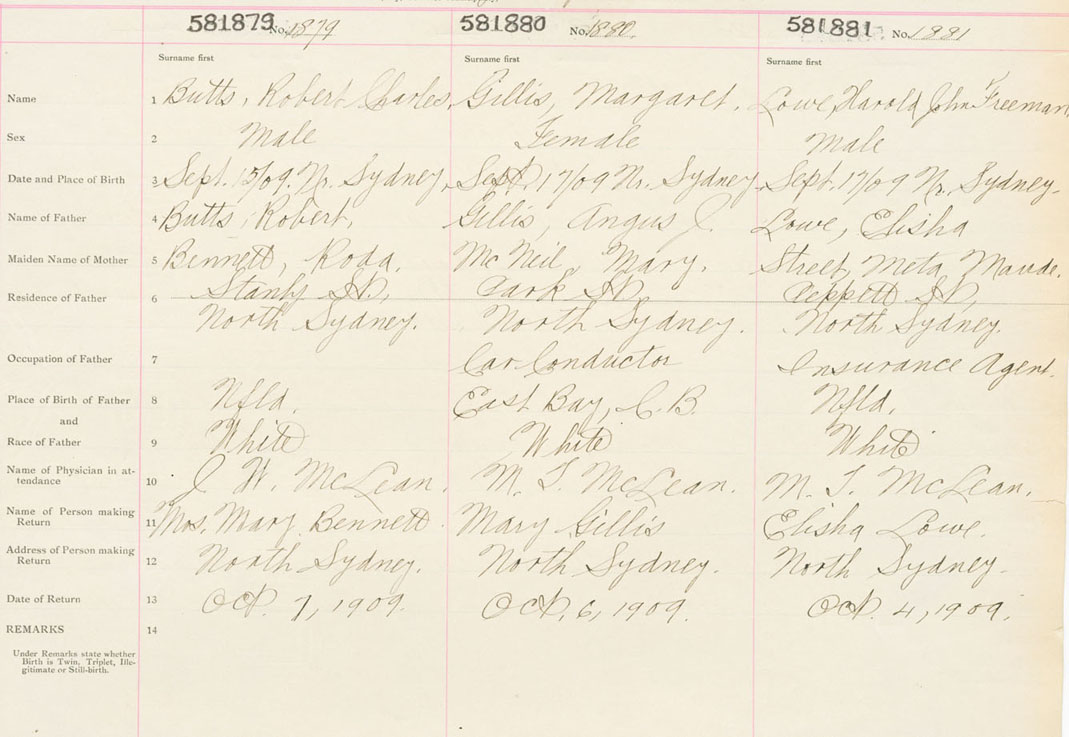 581879 No. 1879 581880 No. 1880. 581881 No. 1881
Surname first Surname first Surname first
Name 1 Butts, Robert Charles. Gillis, Margaret. Lowe, Harold John Freeman
Sex 2 Male Female Male
Date and Place of Birth 3 Sept. 15/09. Nr. Sydney. Sept. 17/09 Nr. Sydney Sept. 17/09 Nr. Sydney.
Name of Father 4 Butts, Robert, Gillis, Angus J. Lowe, Elisha
Maiden Name of Mother 5 Bennett, Roda. McNeil, Mary. Street, Meta Maude.
Residence of Father 6 Stanly St., Park St. Peppett St.,
North Sydney. North Sydney. North Sydney.
Occupation of Father 7 Car Conductor Insurance Agent.
Place of Birth of Father 8 Nfld. East Bay, C.B. Nfld.
and
Race of Father 9 White White White
Name of Physician in at-
tendance 10 J W. McLean. M. T. McLean. M. T. McLean.
Name of Person making
Return 11 Mrs. Mary Bennett. Mary Gillis Elisha Lowe.
Address of Person making
Return 12 North Sydney. North Sydney. North Sydney.
Date of Return 13 Oct. 7, 1909. Oct. 6, 1909. Oct. 4, 1909.
REMARKS 14
Under Remarks state whether
Birth is Twin, Triplet, Ille-
gitimate or Still-birth.